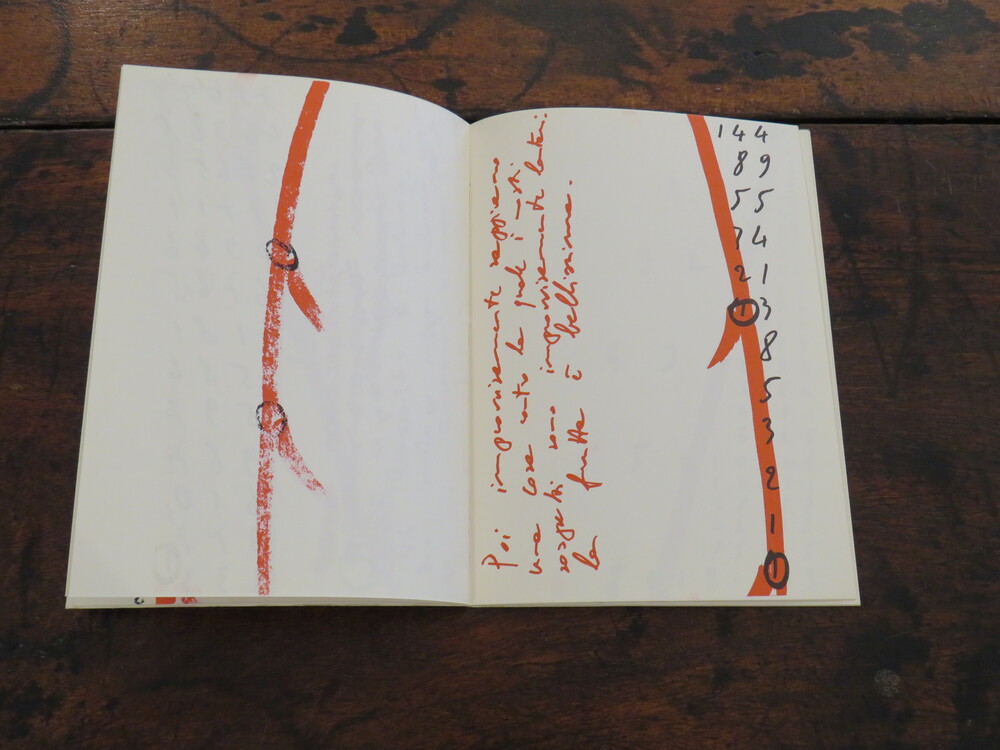 Poi improvvisamente sappiamo
una cosa contro la quale i nostri
sospetti sono improvvisamente lenti:
la frutta è bellissima.
144
89
55
34
21
13
8
5
3
2
1
1